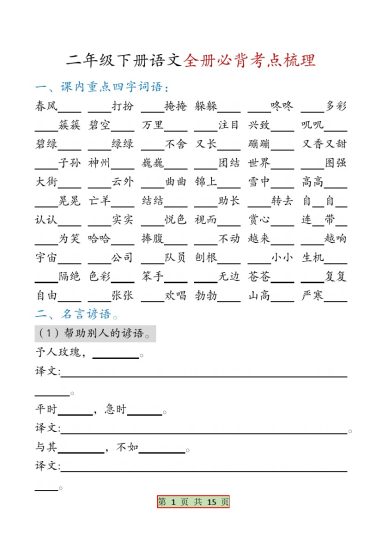 二年级下册语文全册必背考点梳理
一、课内重点四字词语：
春风____ ____打扮 ____掩掩 躲躲____ ____咚咚 ____多彩
____簇簇 碧空____ 万里____ ____注目 兴致____ 叽叽____
碧绿____ ____绿绿 ____不舍 又长____ 蹦蹦____ 又香又甜
____子孙 神州____ 巍巍____ ____团结 世界____ ____图强
大街____ ____云外 ____曲曲 锦上____ 雪中____ 高高____
____晃晃 亡羊____ 结结____ ____助长 ____转去 自__自__
认认____ ____实实 ____悦色 视而____ 赏心____ 连__带__
____为笑 哈哈____ 捧腹____ ____不动 越来____ ____越响
宇宙____ ____公司 ____队员 刨根____ ____小小 生机____
____隔绝 色彩____ 笨手____ ____无边 苍苍____ ____复复
自由____ ____张张 ____欢唱 勃勃____ 山高____ 严寒____
二、名言谚语。
（1）帮助别人的谚语。
予人玫瑰，________。
译文:____________________________________________
______。
平时______，急时______。
译文:____________________________________________。
与其________，不如________。
译文:____________________________________________
____。
第 1 页 共 15 页